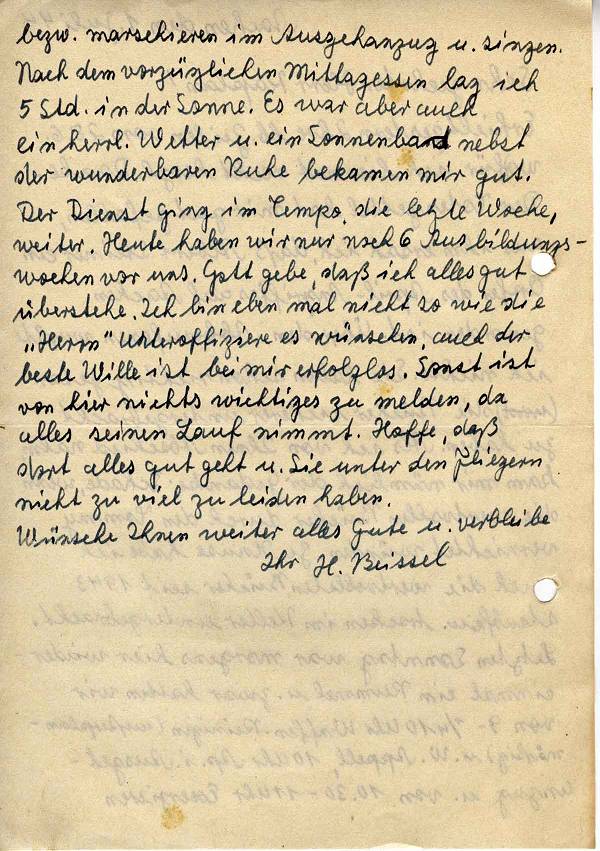 bezw. marschieren im Ausgehanzug u. singen.
Nach dem vorzüglichen Mittagessen lag ich
5 Std. in der Sonne. Es war aber auch
ein herrl. Wetter u. ein Sonnenbad nebst
der wunderbaren Ruhe bekamen mir gut.
Der Dienst ging im Tempo, die letzte Woche,
weiter. Heute haben wir nur noch 6 Ausbildungs-
wochen vor uns. Gott gebe, daß ich alles gut
überstehe. Ich bin eben mal nicht so wie die
„Herrn" Unteroffiziere es wünschen, auch der
beste Wille ist bei mir erfolglos. Sonst ist
von hier nichts wichtiges zu melden, da
alles seinen Lauf nimmt. Hoffe, daß
dort alles gut geht u. Sie unter den Fliegern
nicht zu viel zu leiden haben.
Wünsche Ihnen weiter alles Gute u. verbleibe
Ihr H. Beissel